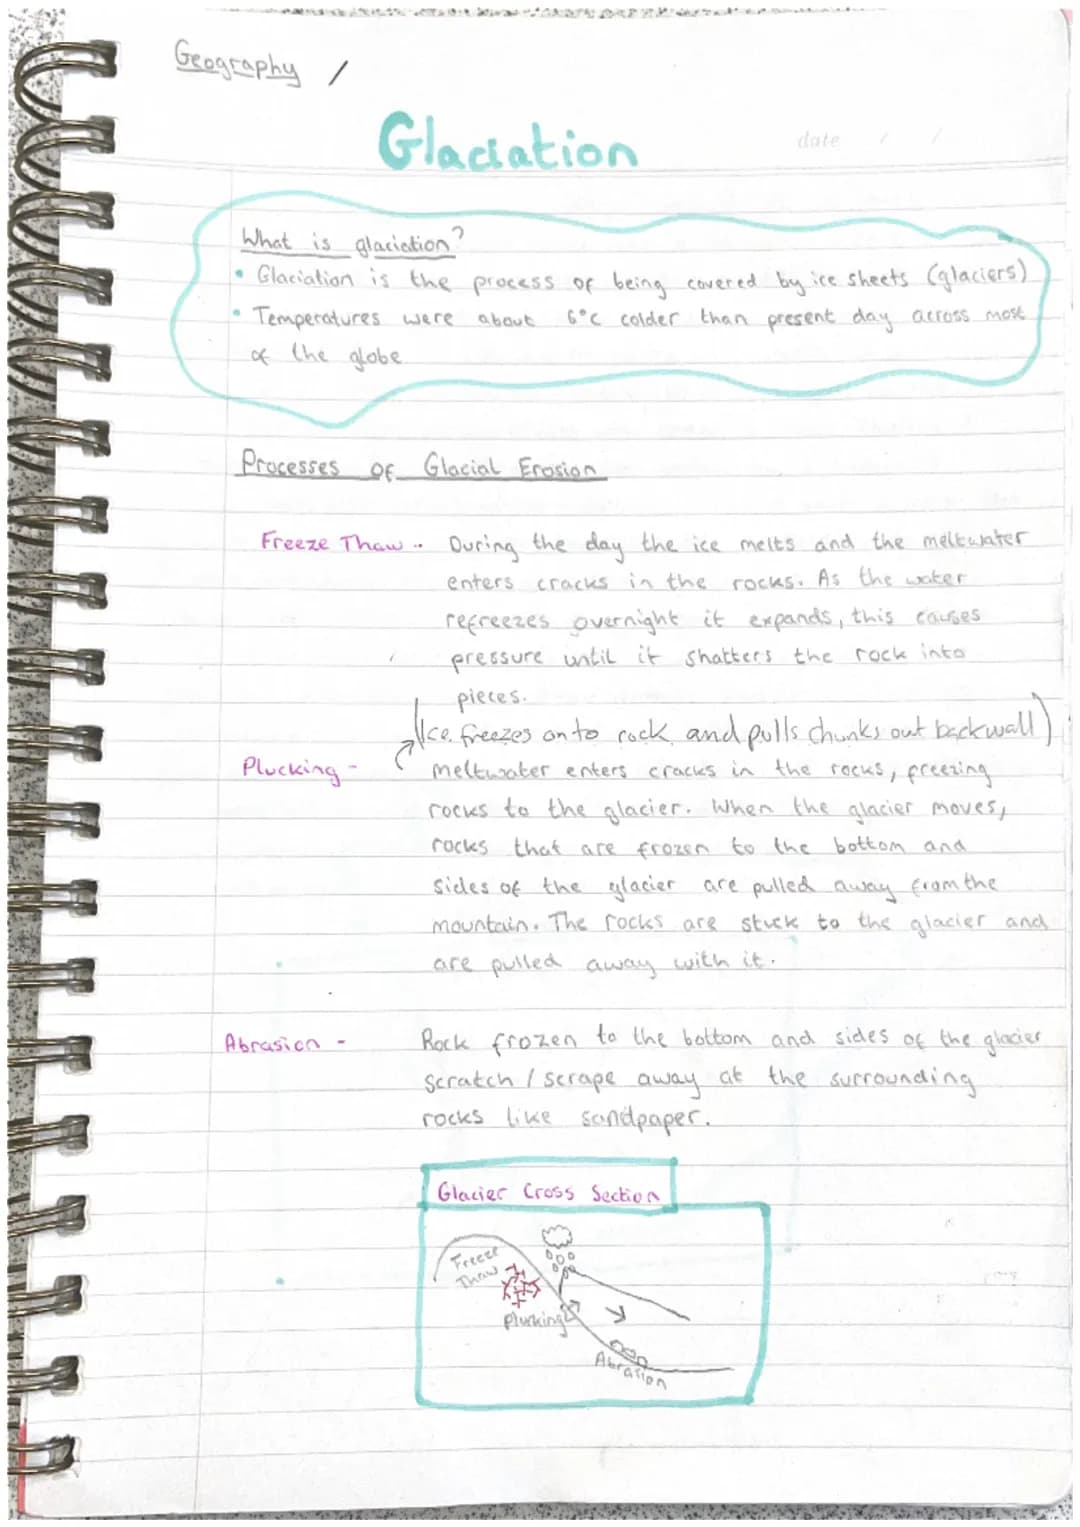 Geography /
Glaciation
date / /
What is glaciation?
• Glaciation is the process of being covered by ice sheets (glaciers)
• Temperatures were about 6°c colder than present day across most
of the globe
Processes of Glacial Erosion
Freeze Thaw -- During the day the ice melts and the meltwater
enters cracks in the rocks. As the water
refreezes overnight it expands, this causes
pressure until it shatters the rock into
pieces.
(Ice freezes on to rock and pulls chunks out backwall)
Plucking - meltwater enters cracks in the rocks, freezing
rocks to the glacier. When the glacier moves,
rocks that are frozen to the bottom and
sides of the glacier are pulled away from the
mountain. The rocks are stuck to the glacier and
are pulled away with it.
Abrasion - Rock frozen to the bottom and sides of the glacier
scratch / scrape away at the surrounding
rocks like sandpaper.
Glacier Cross Section
Freeze
Thaw
Plucking
Abrasion